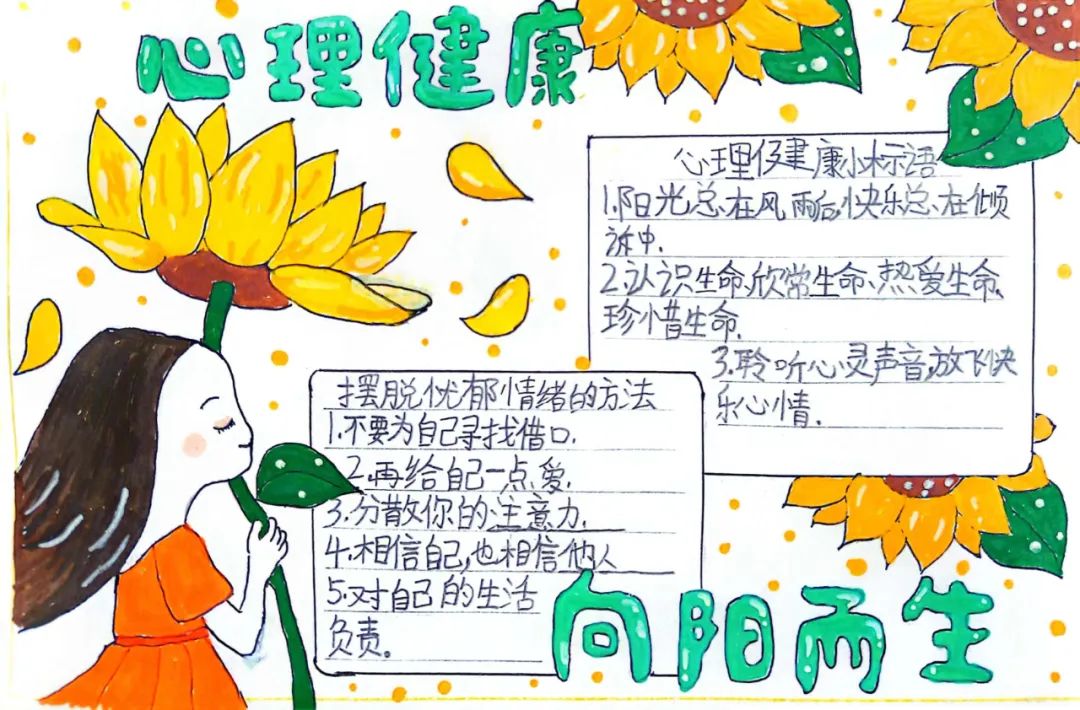 心理健康
心理健康小标语
1.阳光总在风雨后,快乐总在倾
诉中.
2.认识生命、欣常生命、热爱生命、
珍惜生命.
3.聆听心灵声音,放飞快
乐心情.
摆脱忧郁情绪的方法
1.不要为自己寻找借口.
2.再给自己一点爱.
3.分散你的注意力.
4.相信自己,也相信他人
5.对自己的生活
负责。
向阳而生